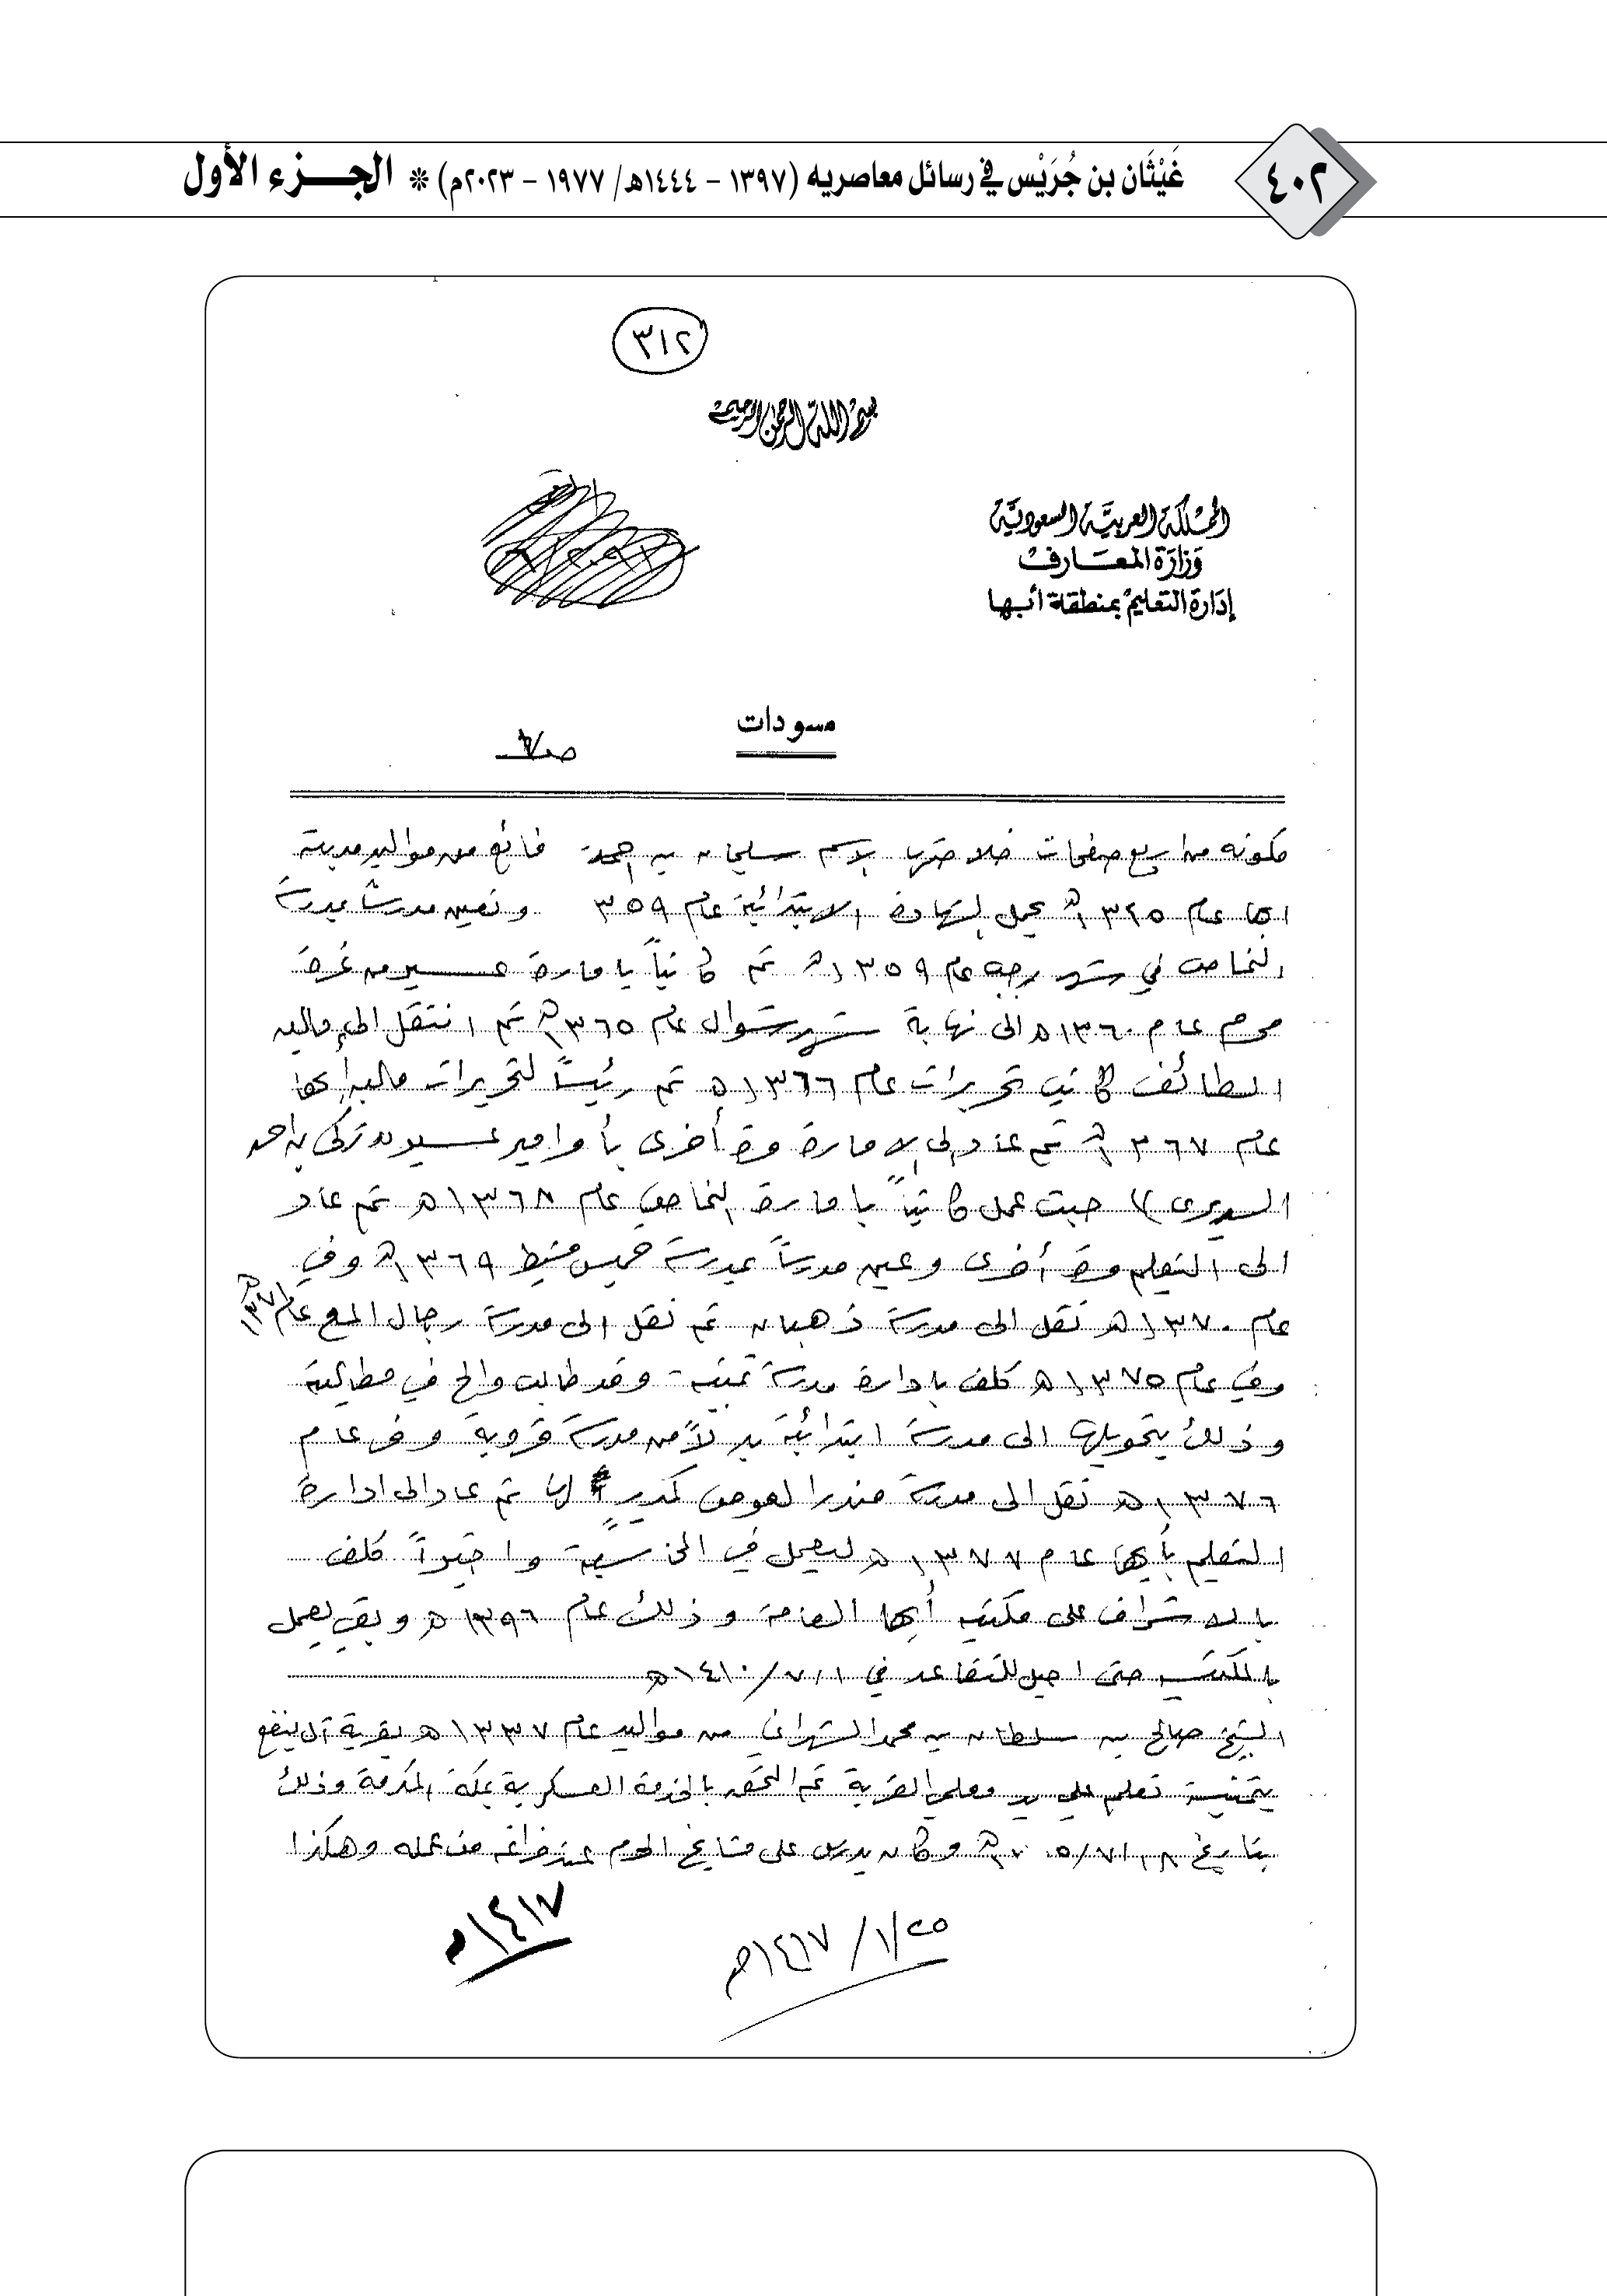 ٤٠٢
غَيْثَان بن جُرَيْس في رسائل معاصريه (١٣٩٧ - ١٤٤٤هـ/ ١٩٧٧ - ٢٠٢٣م) * الجزء الأول
٣١٢
بسم الله الرحمن الرحيم
المملكة العربية السعودية
وزارة المعارف
إدارة التعليم بمنطقة أبها
مسودات
مكونه من اربع صفحات خلاصتها الاسم سليمان بن احمد فائع من مواليد مدينة
ابها عام ١٣٤٥هـ يحمل الشهادة الابتدائية عام ٣٥٩ وتعين مدرساً بمدرسة
النماص في شهر رجب عام ١٣٥٩هـ ثم كاتباً بامارة عسير من غرة
محرم عام ١٣٦٠هـ الى نهاية شهر شوال عام ١٣٦٥هـ ثم انتقل الى مالية
الطائف كاتب تحريرات عام ١٣٦٦هـ ثم رئيساً لتحريرات مالية ابها
عام ١٣٦٧هـ ثم عاد الى الامارة مرة أخرى بأوامير عسير تركي بن احمد
السديري )) حيث عمل كاتباً بامارة النماص عام ١٣٦٨هـ ثم عاد
الى التعليم مرة أخرى وعين مدرساً بمدرسة خميس مشيط ١٣٦٩هـ وفي
عام ١٣٧٠هـ نقل الى مدرسة ذهبان ثم نقل الى مدرسة رجال المع عام
وفي عام ١٣٧٥هـ كلف بادارة مدرسة تمنية وقد طالب والح في مطالبته
وذلك بتحويلها الى مدرسة ابتدائية بدلاً من مدرسة قروية وفي عام
١٣٧٦هـ نقل الى مدرسة صندر العوص كمديراً لها ثم عاد الى ادارة
التعليم بأبها عام ١٣٧٧هـ ليعمل في واخيراً كلف
بالاشراف على مكتبة أبها العامة وذلك عام ١٣٩٦هـ وبقي يعمل
بالمكتبة حتى احيل للتقاعد في ١/٧/١٤١٠هـ
الشيخ صالح بن سلطان بن محمد الشهراني من مواليد عام ١٣٣٧هـ بقرية آل ينفع
بتمنية تعلم على يد معلم القرية ثم التحق بالخدمة العسكرية بمكة المكرمة وذلك
بتاريخ وكان يدرس على مشايخ الحرم عند فراغه من عمله وهكذا
٢٥/١/١٤١٧هـ
١٤١٧هـ